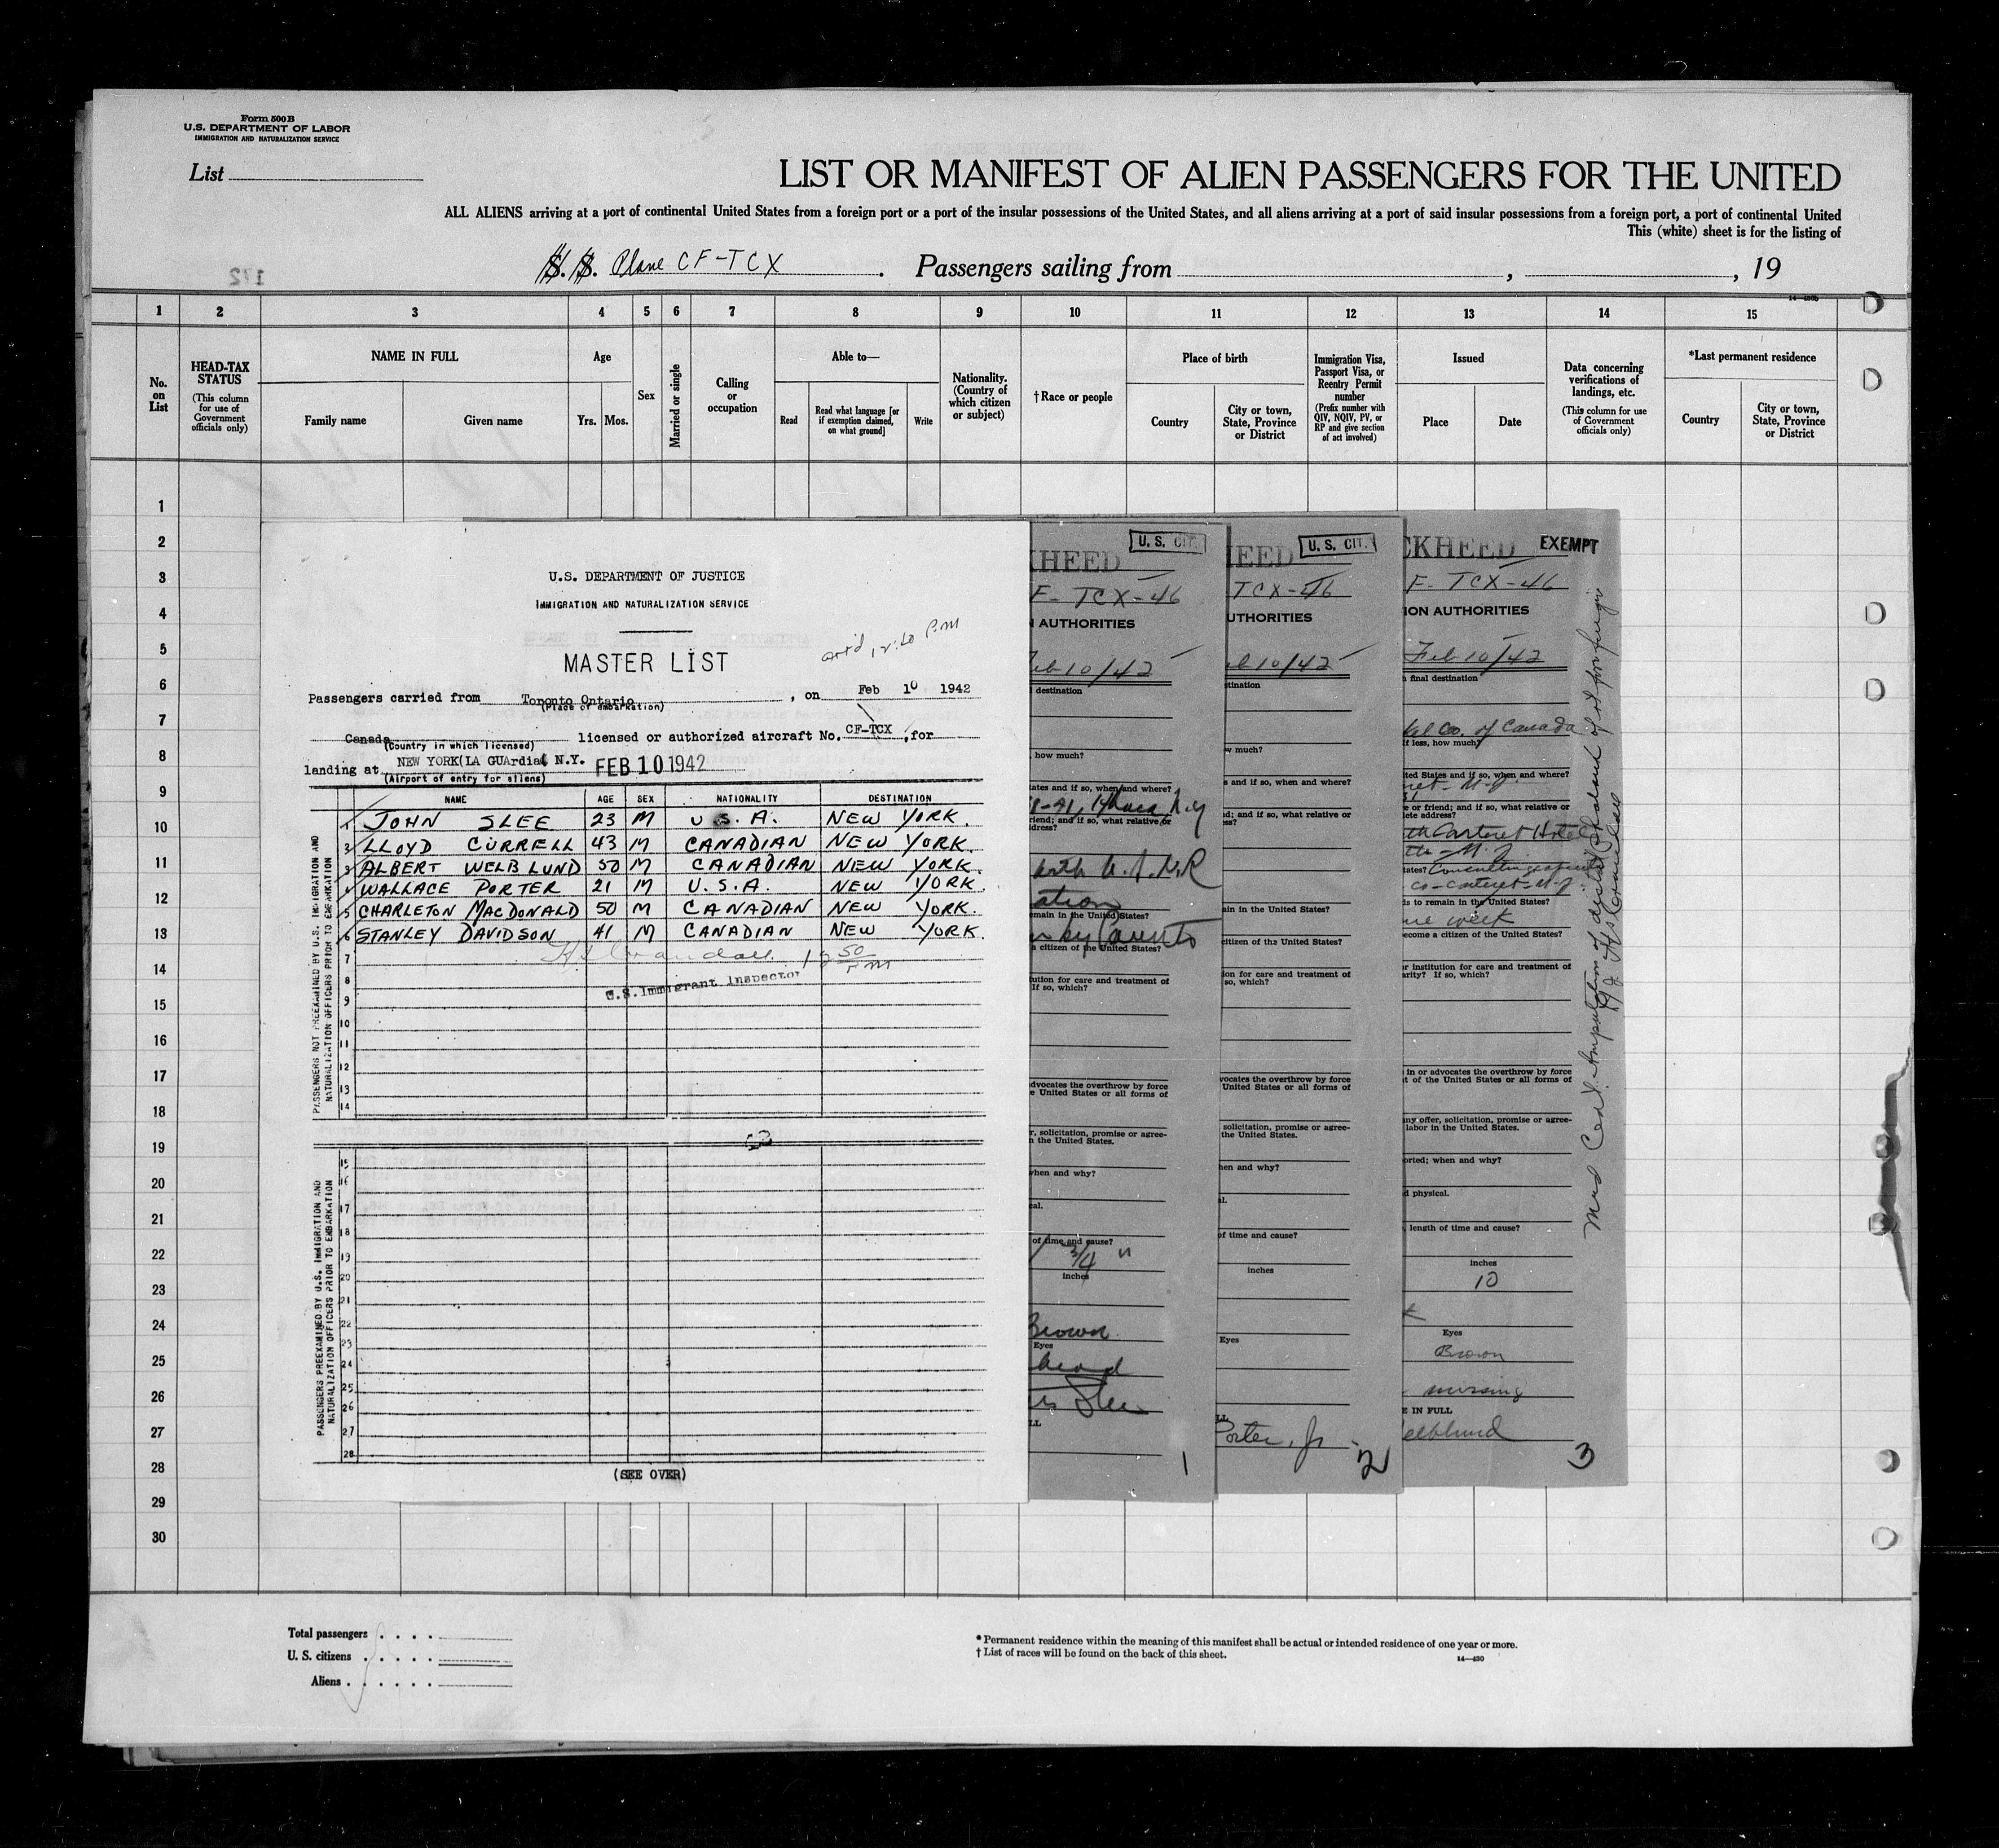 Form 500B
U.S. DEPARTMENT OF LABOR
IMMIGRATION AND NATURALIZATION SERVICE
List
LIST OR MANIFEST OF ALIEN PASSENGERS FOR THE UNITED
ALL ALIENS arriving at a port of continental United States from a foreign port or a port of the insular possessions of the United States, and all aliens arriving at a port of said insular possessions from a foreign port, a port of continental United
This (white) sheet is for the listing of
172
S. S. Plane CF-TCX . Passengers sailing from , , 19
14-430b
1 2 3 4 5 6 7 8 9 10 11 12 13 14 15
No. on List
HEAD-TAX STATUS (This column for use of Government officials only)
NAME IN FULL
Family name Given name
Age
Yrs. Mos.
Sex
Married or single
Calling or occupation
Able to—
Read
Read what language [or if exemption claimed, on what ground]
Write
Nationality. (Country of which citizen or subject)
†Race or people
Place of birth
Country
City or town, State, Province or District
Immigration Visa, Passport Visa, or Reentry Permit number (Prefix number with QIV, NQIV, PV, or RP and give section of act involved)
Issued
Place Date
Data concerning verifications of landings, etc. (This column for use of Government officials only)
*Last permanent residence
Country
City or town, State, Province or District
1
2
3
4
5
6
7
8
9
10
11
12
13
14
15
16
17
18
19
20
21
22
23
24
25
26
27
28
29
30
U.S. DEPARTMENT OF JUSTICE
IMMIGRATION AND NATURALIZATION SERVICE
MASTER LIST
arr'd 12:40 P.M
Passengers carried from Toronto Ontario , on Feb 10 1942
(Place of embarkation)
Canada licensed or authorized aircraft No. CF-TCX , for
(Country in which licensed)
landing at NEW YORK(LA GUArdia( N.Y. FEB 10 1942
(Airport of entry for aliens)
NAME AGE SEX NATIONALITY DESTINATION
1 JOHN SLEE 23 M U.S.A. NEW YORK.
2 LLOYD CURRELL 43 M CANADIAN NEW YORK.
3 ALBERT WELBLUND 50 M CANADIAN NEW YORK.
4 WALLACE PORTER 21 M U.S.A. NEW YORK.
5 CHARLETON MACDONALD 50 M CANADIAN NEW YORK.
6 STANLEY DAVIDSON 41 M CANADIAN NEW YORK.
7 12 50 PM
8 U.S. Immigrant Inspector
9
10
11
12
13
14
PASSENGERS NOT PREEXAMINED BY U.S. IMMIGRATION AND NATURALIZATION OFFICERS PRIOR TO EMBARKATION
15
16
17
18
19
20
21
22
23
24
25
26
27
28
PASSENGERS PREEXAMINED BY U.S. IMMIGRATION AND NATURALIZATION OFFICERS PRIOR TO EMBARKATION
(SEE OVER)
U. S. CIT.
KHEED
F- TCX-46
AUTHORITIES
Feb 10/42
destination
how much?
ates and if so, when and where?
Ithaca N.Y
riend; and if so, what relative or
dress?
emain in the United States?
a citizen of the United States?
ution for care and treatment of
If so, which?
dvocates the overthrow by force
e United States or all forms of
r, solicitation, promise or agree-
n the United States.
when and why?
cal.
of time and cause?
3/4 "
inches
Brown
Eyes
Slee
LL
1
U. S. CIT.
EED
TCX-46
UTHORITIES
eb 10/42
tination
w much?
s and if so, when and where?
d; and if so, what relative or
ss?
ain in the United States?
citizen of the United States?
ion for care and treatment of
so, which?
vocates the overthrow by force
United States or all forms of
solicitation, promise or agree-
the United States.
hen and why?
al.
of time and cause?
inches
Eyes
LL
Porter, Jr
2
CKHEED EXEMPT
F- TCX-46
ION AUTHORITIES
Feb 10/42
final destination
Co. of Canada
If less, how much?
ited States and if so, when and where?
e or friend; and if so, what relative or
lete address?
Carteret Hotel
tates?
ds to remain in the United States?
one week
ecome a citizen of the United States?
r institution for care and treatment of
arity? If so, which?
in or advocates the overthrow by force
t of the United States or all forms of
any offer, solicitation, promise or agree-
labor in the United States.
orted; when and why?
d physical.
length of time and cause?
inches
10
Eyes
Brown
missing
E IN FULL
elblund
3
Med Cert. Amputation of distal phalanx of rt forefinger
Total passengers . . . .
U. S. citizens . . . . .
Aliens . . . . . .
* Permanent residence within the meaning of this manifest shall be actual or intended residence of one year or more.
† List of races will be found on the back of this sheet.
14—430